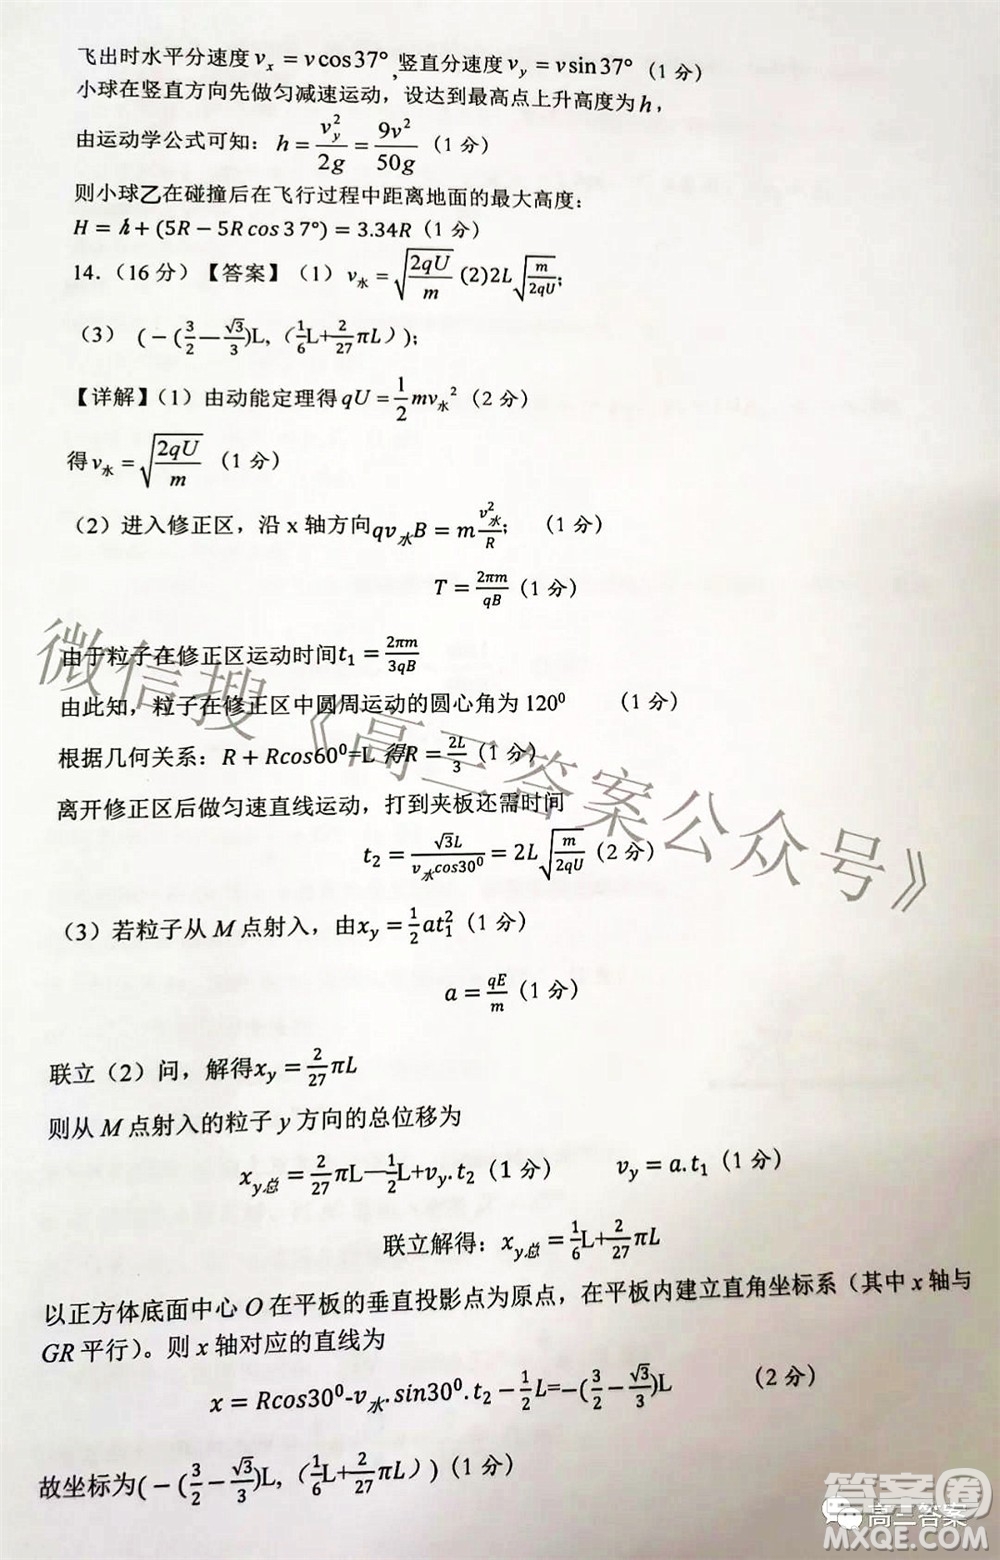 飞出时水平分速度 vₓ = v cos37° ,竖直分速度 v_y = v sin37° (1 分)
小球在竖直方向先做匀减速运动，设达到最高点上升高度为 h，
由运动学公式可知： h = v_y²/2g = 9v²/50g (1 分)
则小球乙在碰撞后在飞行过程中距离地面的最大高度：
H = h + (5R − 5R cos37°) = 3.34R (1 分)
14.（16 分）【答案】（1） v水 = √(2qU/m) (2)2L√(m/2qU);
（3） (−(3/2 − √3/3)L,（1/6 L+2/27 πL）);
【详解】（1）由动能定理得 qU = 1/2 mv水² (2 分)
得 v水 = √(2qU/m) (1 分)
（2）进入修正区，沿 x 轴方向 qv水B = m v水²/R; (1 分)
T = 2πm/qB (1 分)
由于粒子在修正区运动时间 t₁ = 2πm/3qB
由此知，粒子在修正区中圆周运动的圆心角为 120⁰ (1 分)
根据几何关系：R + Rcos60⁰=L 得R = 2L/3 (1 分)
离开修正区后做匀速直线运动，打到夹板还需时间
t₂ = √3L/(v水cos30⁰) = 2L√(m/2qU) (2 分)
（3）若粒子从 M 点射入，由 x_y = 1/2 at₁² (1 分)
a = qE/m (1 分)
联立（2）问，解得 x_y = 2/27 πL
则从 M 点射入的粒子 y 方向的总位移为
x_y总 = 2/27 πL—1/2 L+v_y.t₂ (1 分) v_y = a.t₁ (1 分)
联立解得：x_y总 = 1/6 L+2/27 πL
以正方体底面中心 O 在平板的垂直投影点为原点，在平板内建立直角坐标系（其中 x 轴与
GR 平行）。则 x 轴对应的直线为
x = Rcos30⁰-v水.sin30⁰.t₂ − 1/2 L=−(3/2 − √3/3)L (2 分)
故坐标为(−(3/2 − √3/3)L,（1/6 L+2/27 πL）) (1 分)
微信搜《高三答案公众号》
高三答案
答案圈
MXQE.COM